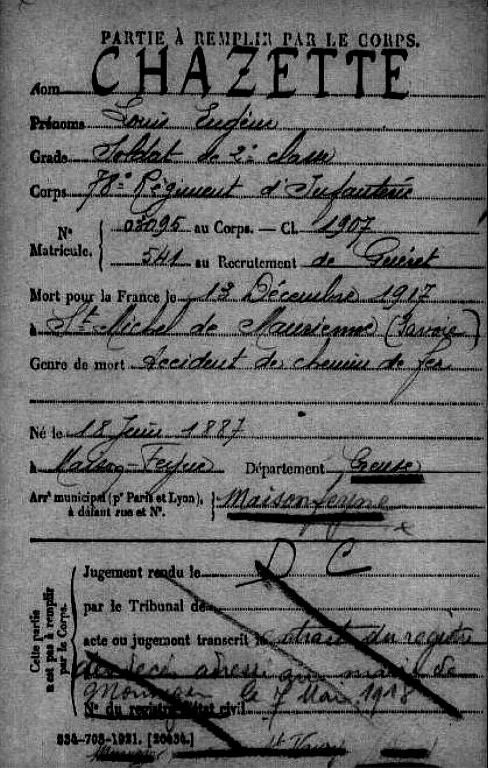 PARTIE À REMPLIR PAR LE CORPS.
Nom CHAZETTE
Prénoms Louis Eugène
Grade Soldat de 2e classe
Corps 78e Régiment d'Infanterie
N° Matricule. { 03095 au Corps. — Cl. 1907
541 au Recrutement de Guéret
Mort pour la France le 13 Décembre 1917
à St Michel de Maurienne (Savoie)
Genre de mort Accident de chemin de fer
Né le 18 Juin 1887
à Maison-Feyne Département Creuse
Arrt municipal (pr Paris et Lyon), à défaut rue et N°. } Maison feyne
Cette partie n'est pas à remplir par le Corps.
Jugement rendu le D C
par le Tribunal de
acte ou jugement transcrit le extrait du registre
des décès adressé au maire de
le 7 Mars 1918
N° du registre d'état civil
534-708-1921. [26434.]